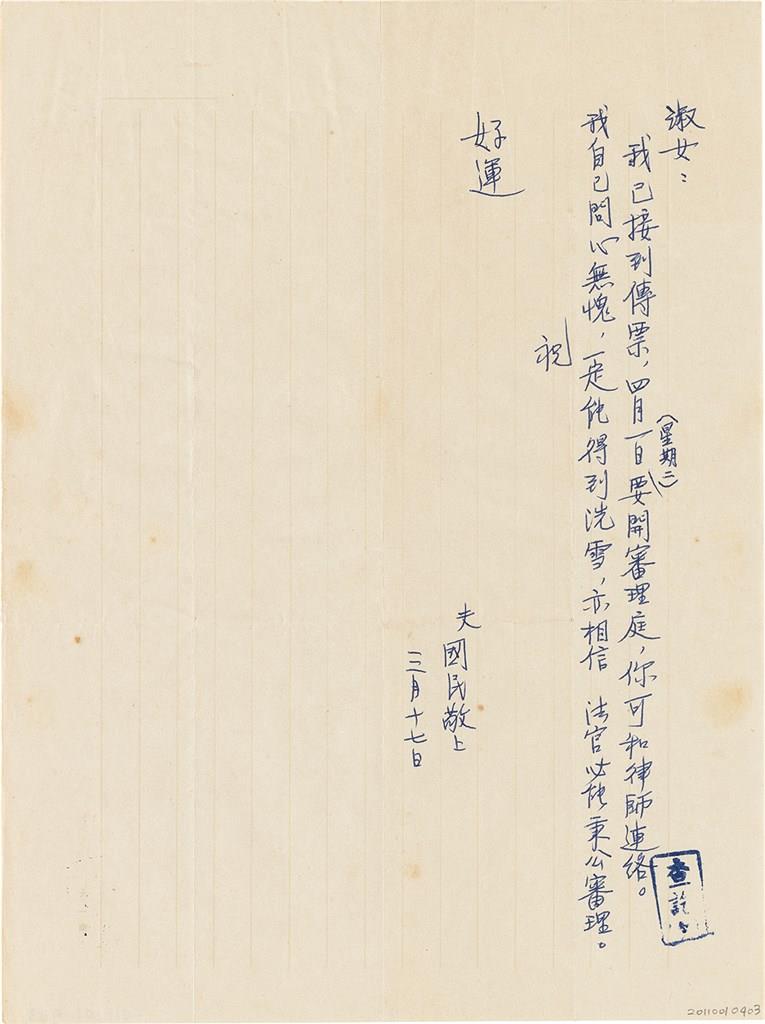 淑女：
我已接到傳票，四月一日（星期二）要開審理庭，你可和律師連絡。
我自己問心無愧，一定能得到洗雪，亦相信 法官必能秉公審理。
祝
好運
夫 國民敬上
三月十七日
查訖
20110010403